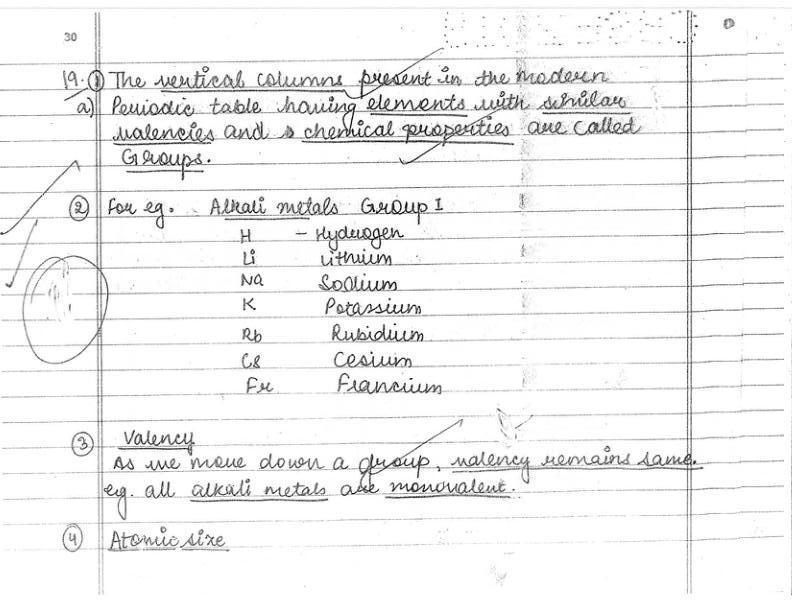 30
19. ① The vertical columns present in the modern
a) Periodic table having elements with similar
valencies and chemical properties are called
Groups.
② For eg. Alkali metals Group I
H – Hydrogen
Li Lithium
Na Sodium
K Potassium
Rb Rubidium
Cs Cesium
Fr Francium
③ Valency
As we move down a group, valency remains same.
eg. all alkali metals are monovalent.
④ Atomic size